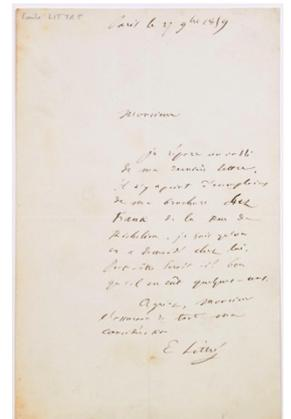 Emile LITTRE
Paris le 27 9bre 1849
Monsieur
je répare un oubli
de ma dernière lettre.
il n'y a point d'exemplaires
de ma brochure chez
Franck de la rue de
Richelieu, je sais qu'on
en a demandé chez lui.
Peut-être serait-il bon
qu'il en eût quelques-uns.
Agréez, Monsieur
l'assurance de toute ma
considération
E Littré